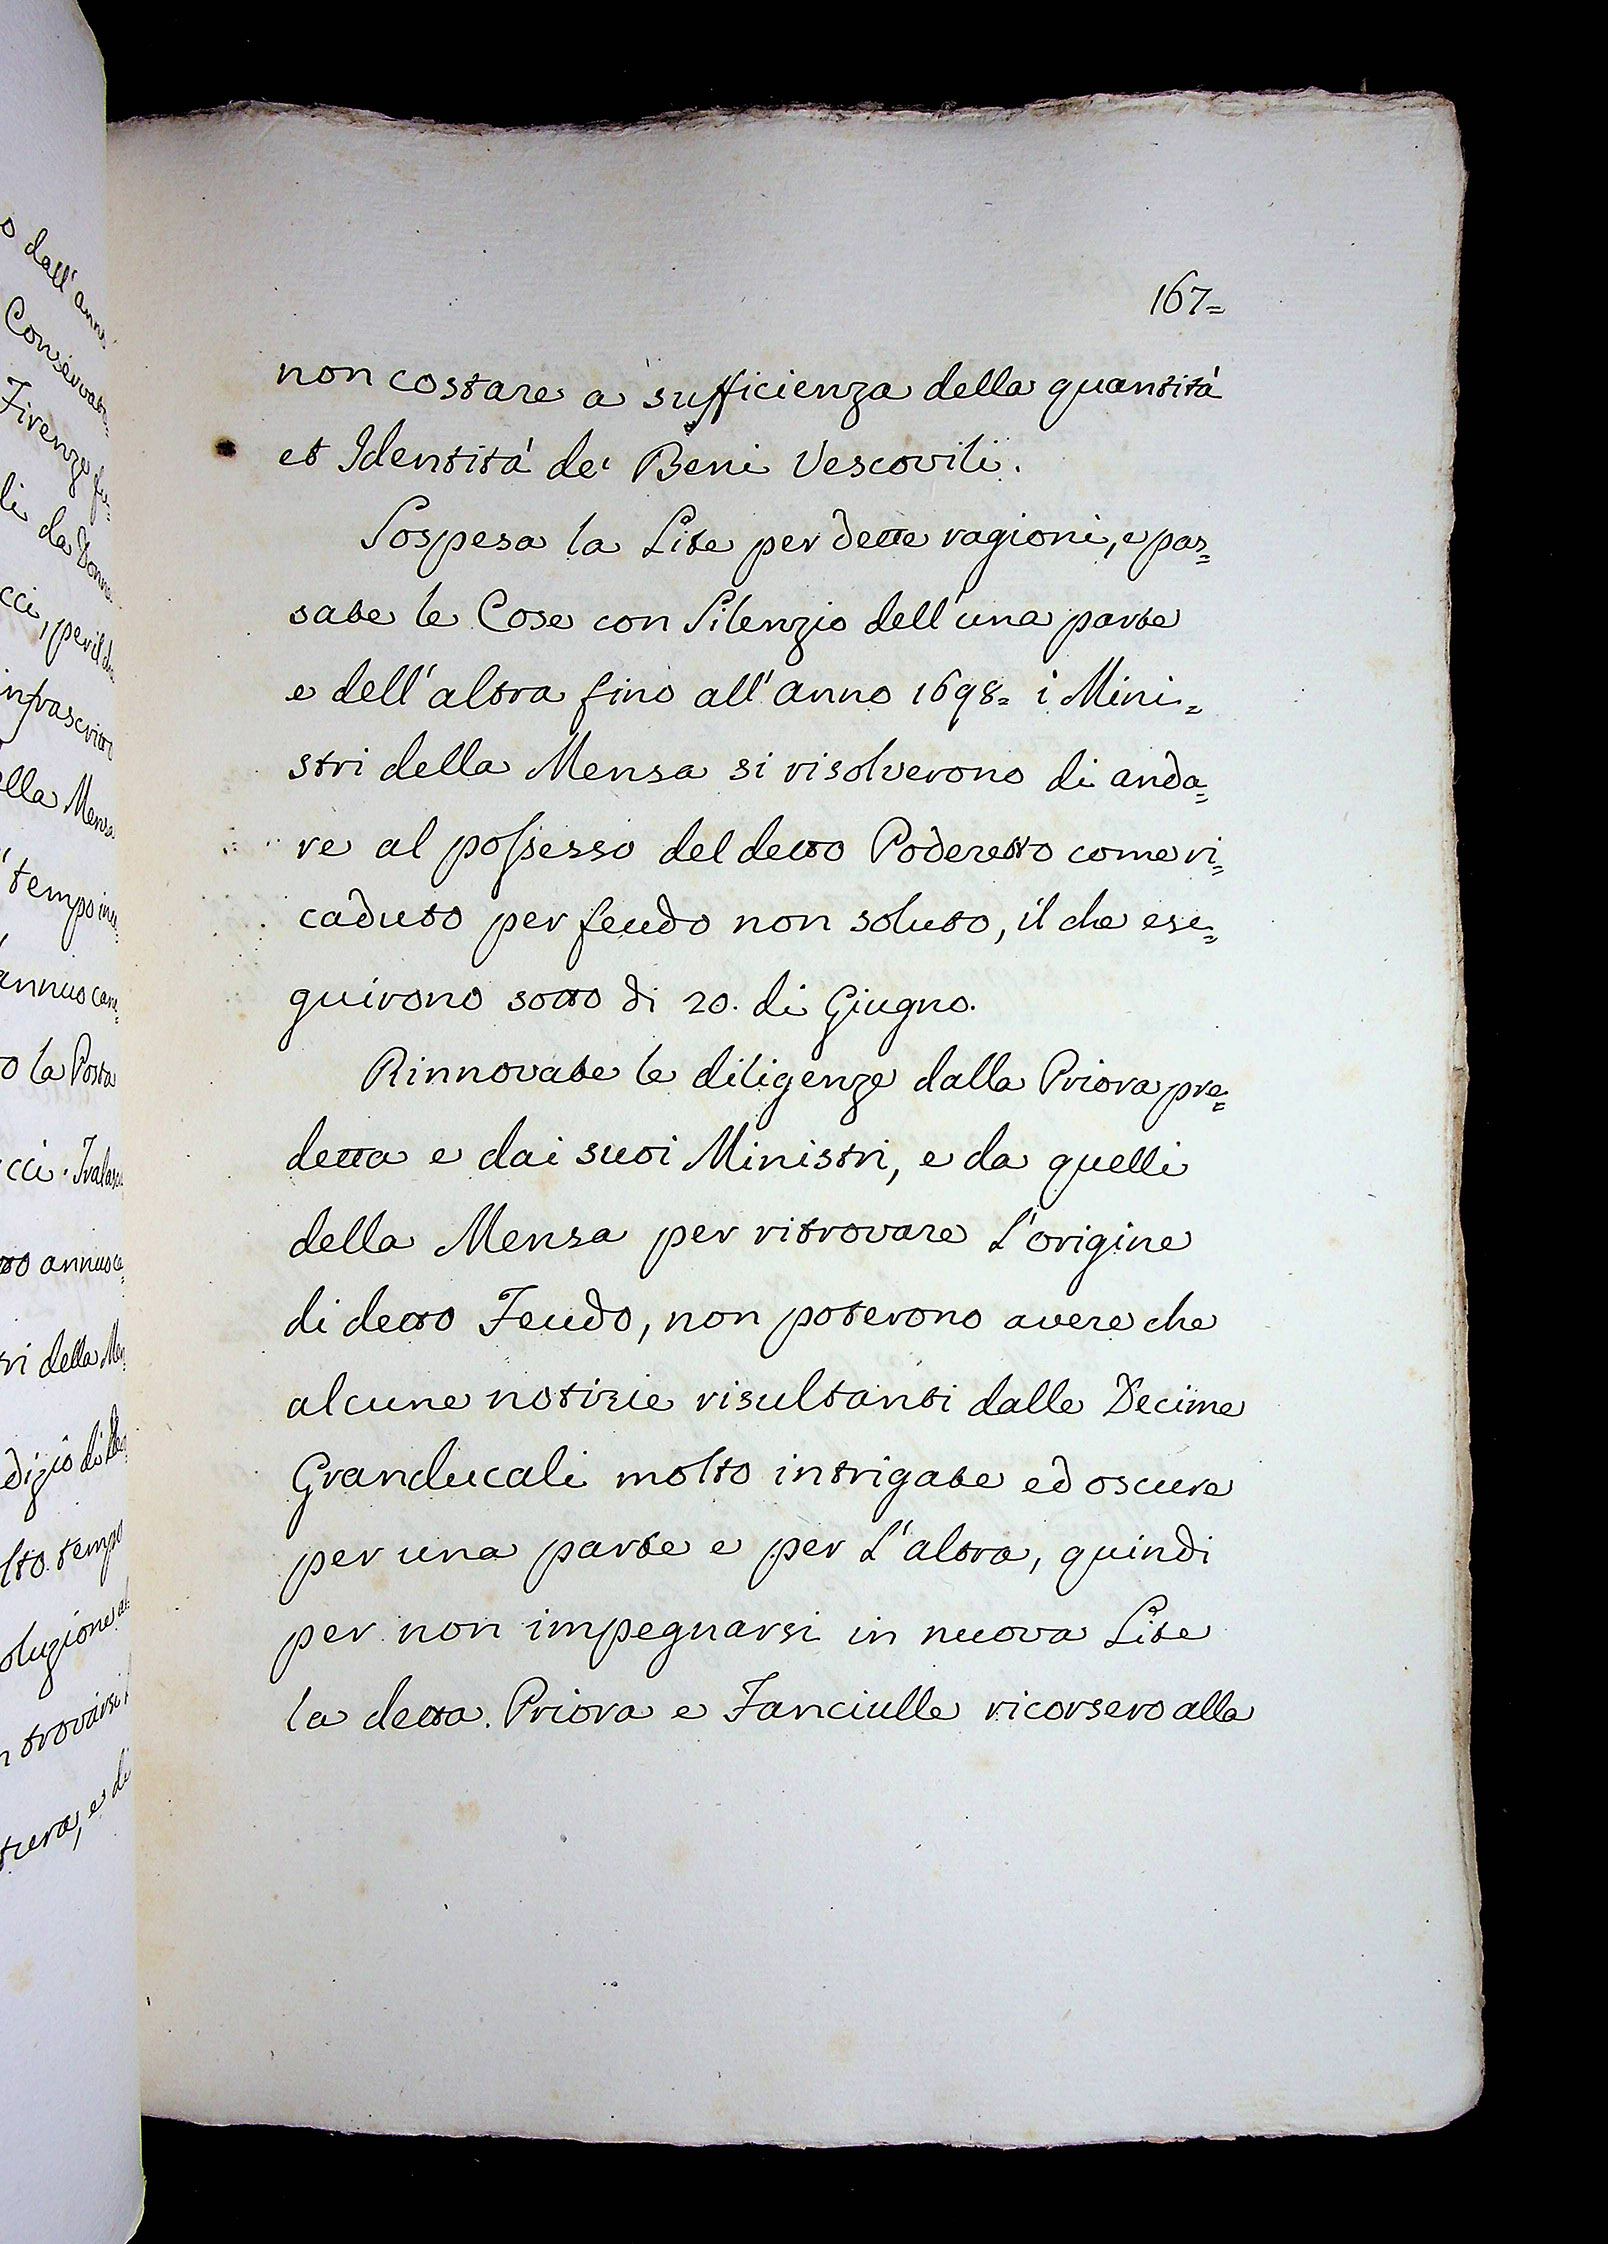 167=
non costare a sufficienza della quantità
et Identità de' Beni Vescovili.
Sospesa la Lite per dette ragioni, e pas=
sate le Cose con Silenzio dell'una parte
e dell'altra fino all'anno 1698= i Mini=
stri della Mensa si risolverono di anda=
re al possesso del detto Poderetto come ri=
caduto per feudo non soluto, il che ese=
guirono sotto dì 20. di Giugno.
Rinnovate le diligenze dalla Priora pre=
detta e dai suoi Ministri, e da quelli
della Mensa per ritrovare L'origine
di detto Feudo, non poterono avere che
alcune notizie risultanti dalle Decime
Granducali molto intrigate ed oscure
per una parte e per L'altra, quindi
per non impegnarsi in nuova Lite
la detta Priora e Fanciulle ricorsero alla
o dall'anno
Conservato
Firenze
li da Donna
cci, per il
infrascritto
ella Mensa
tempo
annuo
o la Posta
cci.
tto annuo
tri della
dizio di
lto tempo
oluzione
trovarsi
e di